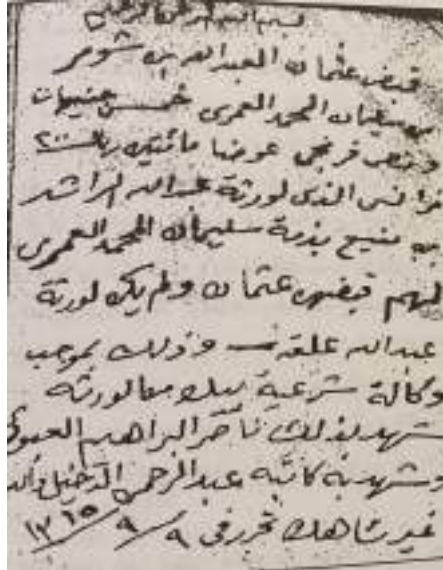 بسم الله الرحمن الرحيم
قبض عثمان العبدالله بن شومر
من سليمان المحمد العمري خمس جنيهات
ونصف فرنجي عوضا مائتين ريال ٢٠٠
فرانس الذي لورثة عبدالله الراشد
بن منيع بذمة سليمان المحمد العمري
لهم قبضهن عثمان ولم يكن لورثة
عبدالله علقه وذلك بموجب
وكالة شرعية بيده من الورثه
شهد بذلك ناصر البراهيم العبودي
وشهد به كاتبه عبدالرحمن الدخيل والله
خير شاهد تحرر في ٩ / ٩ / ١٣١٥